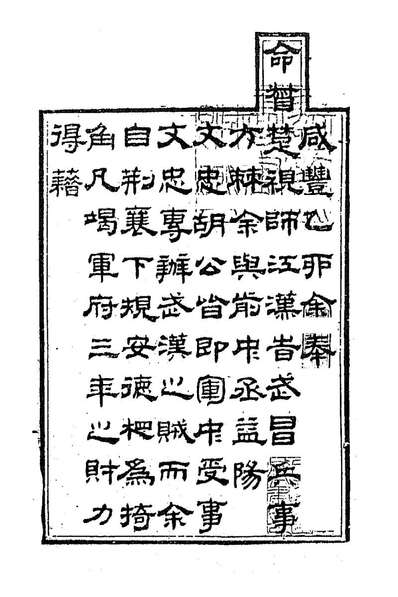 咸豐乙卯余奉
命督楚視師江漢旹武昌兵事
方棘余與前中丞益陽
文忠胡公皆即軍中受事
文忠專辦武漢之賊而余
自荆襄下規安德相爲掎
角凡竭軍府三年之財力
得藉